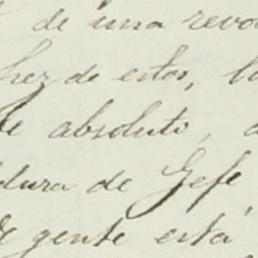 de una revo
hez de estos, l
te absoluto, a
dura de Gefe
de gente está